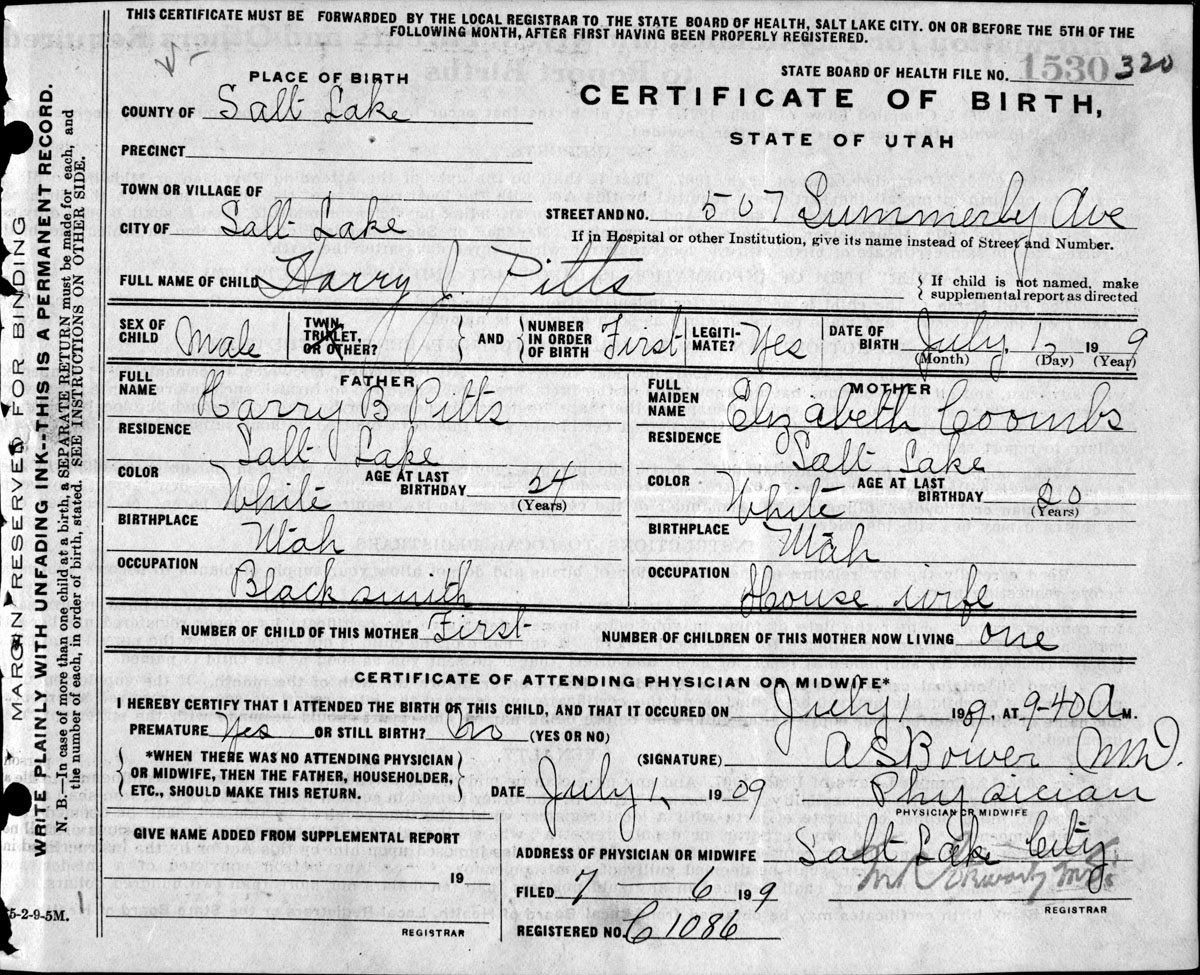 THIS CERTIFICATE MUST BE FORWARDED BY THE LOCAL REGISTRAR TO THE STATE BOARD OF HEALTH, SALT LAKE CITY. ON OR BEFORE THE 5TH OF THE
FOLLOWING MONTH, AFTER FIRST HAVING BEEN PROPERLY REGISTERED.
STATE BOARD OF HEALTH FILE NO. 1530 320
PLACE OF BIRTH
CERTIFICATE OF BIRTH,
COUNTY OF Salt Lake
STATE OF UTAH
PRECINCT
TOWN OR VILLAGE OF
CITY OF Salt Lake
STREET AND NO. 507 Summerby Ave
If in Hospital or other Institution, give its name instead of Street and Number.
FULL NAME OF CHILD Harry J Pitts
If child is not named, make
supplemental report as directed
SEX OF CHILD Male
TWIN, TRIPLET, OR OTHER?
AND
NUMBER IN ORDER OF BIRTH First
LEGITI-MATE? Yes
DATE OF BIRTH July, 1 19 9
(Month) (Day) (Year)
FATHER
FULL NAME Harry B Pitts
RESIDENCE Salt Lake
COLOR White
AGE AT LAST BIRTHDAY 24
(Years)
BIRTHPLACE Utah
OCCUPATION Blacksmith
MOTHER
FULL MAIDEN NAME Elizabeth Coombs
RESIDENCE Salt Lake
COLOR White
AGE AT LAST BIRTHDAY 20
(Years)
BIRTHPLACE Utah
OCCUPATION House wife
NUMBER OF CHILD OF THIS MOTHER First
NUMBER OF CHILDREN OF THIS MOTHER NOW LIVING one
CERTIFICATE OF ATTENDING PHYSICIAN OR MIDWIFE*
I HEREBY CERTIFY THAT I ATTENDED THE BIRTH OF THIS CHILD, AND THAT IT OCURED ON July 1 1909, AT 9-40 A M.
PREMATURE Yes OR STILL BIRTH? No (YES OR NO)
*WHEN THERE WAS NO ATTENDING PHYSICIAN
OR MIDWIFE, THEN THE FATHER, HOUSEHOLDER,
ETC., SHOULD MAKE THIS RETURN.
(SIGNATURE) A S Bower MD.
DATE July 1, 1909
Physician
PHYSICIAN OR MIDWIFE
GIVE NAME ADDED FROM SUPPLEMENTAL REPORT
19
REGISTRAR
ADDRESS OF PHYSICIAN OR MIDWIFE Salt Lake City
FILED 7 6 19 9
REGISTRAR
REGISTERED NO. C 1086
5-2-9-5M.
MARGIN RESERVED FOR BINDING
WRITE PLAINLY WITH UNFADING INK--THIS IS A PERMANENT RECORD.
N. B.—In case of more than one child at a birth, a SEPARATE RETURN must be made for each, and
the number of each, in order of birth, stated. SEE INSTRUCTIONS ON OTHER SIDE.